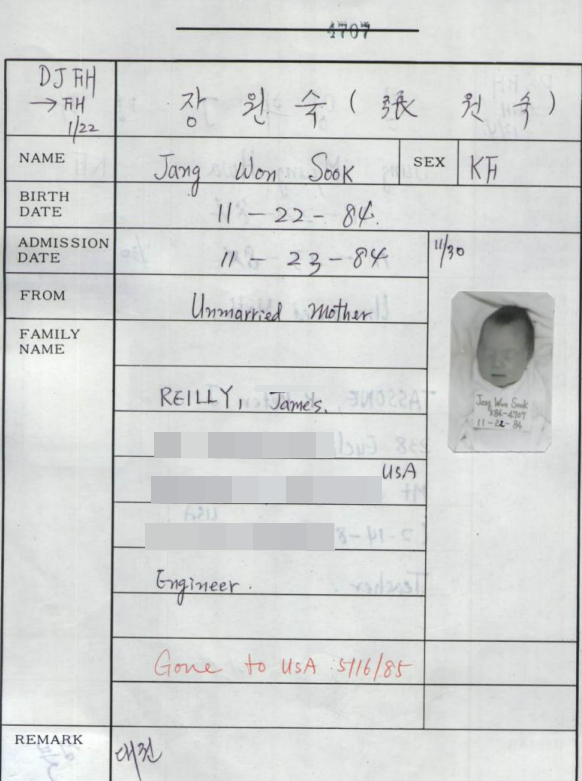 4707
DJ FH
→ FH
1/22
장 원 숙 ( 張 원 숙 )
NAME
Jang Won Sook
SEX
KFH
BIRTH
DATE
11-22-84.
ADMISSION
DATE
11-23-84
11/30
FROM
Unmarried Mother
FAMILY
NAME
Jang Won Sook
K84-4707
11-22-84
REILLY, James.
USA
Engineer.
Gone to USA 5/16/85
REMARK
대전